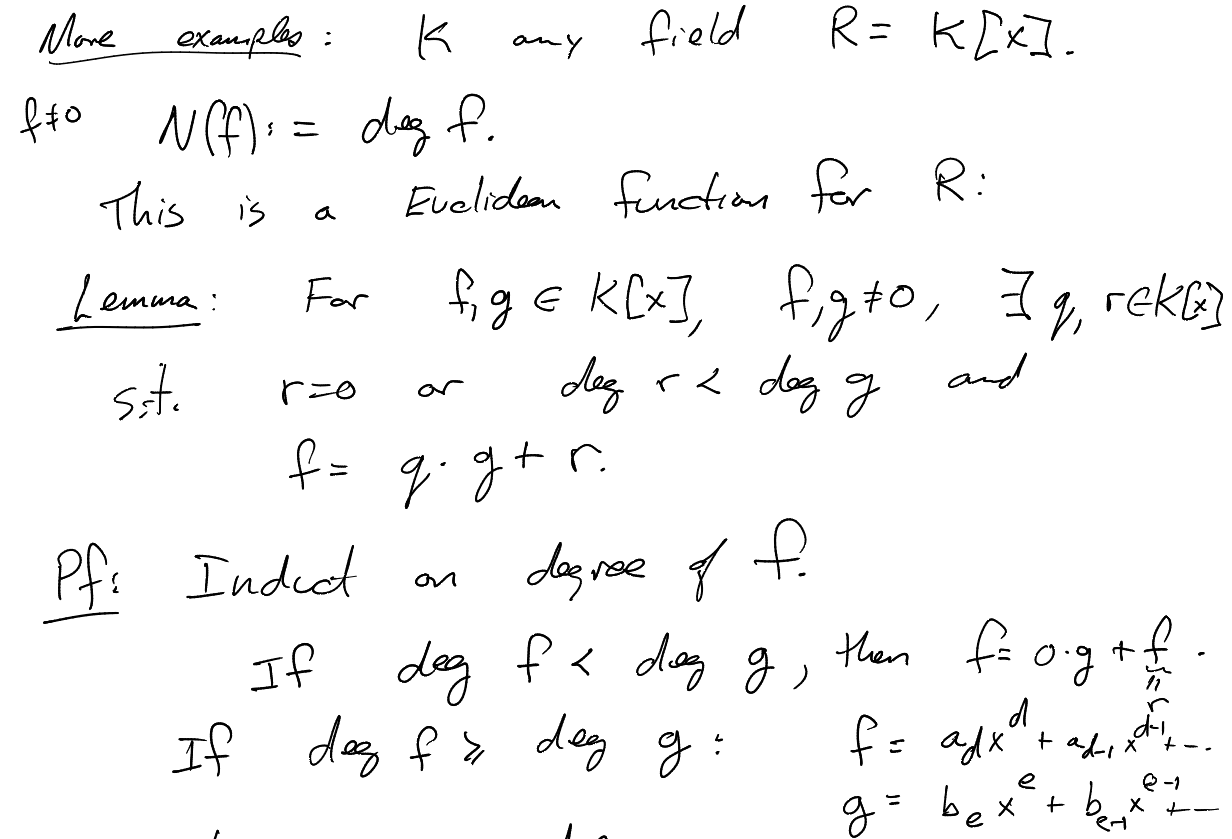 More examples: K any field R = K[x].
f≠0 N(f) := deg f.
This is a Euclidean function for R:
Lemma: For f, g ∈ K[x], f, g ≠ 0, ∃ q, r ∈ K[x]
s.t. r=0 or deg r < deg g and
f = q · g + r.
Pf: Induct on degree of f.
If deg f < deg g, then f = 0·g + f.
" r
If deg f ≥ deg g: f = a_d x^d + a_{d-1} x^{d-1} + ...
g = b_e x^e + b_{e-1} x^{e-1} + ...